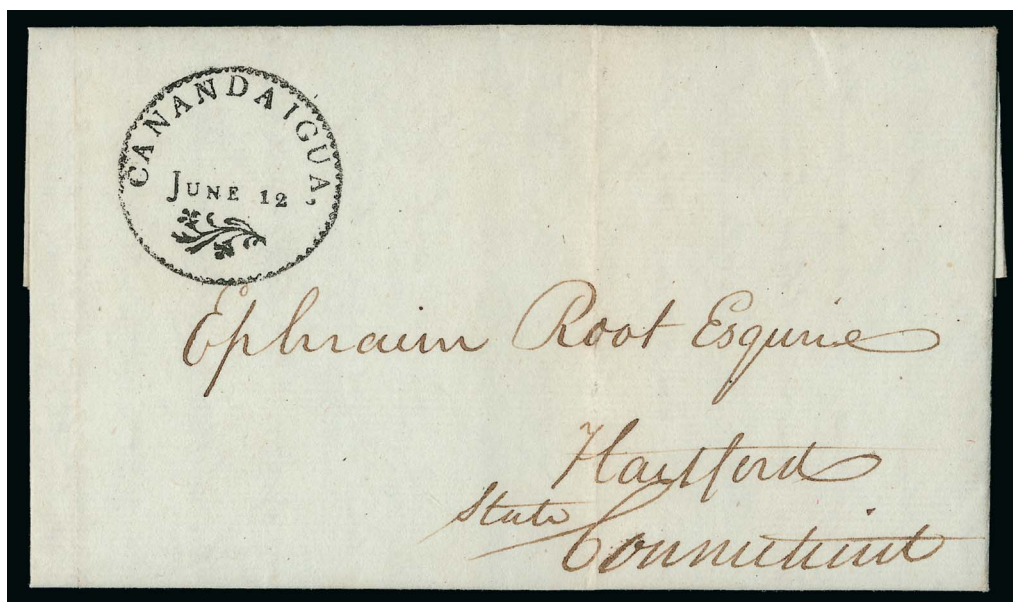 CANANDAIGUA,
JUNE 12
Ephraim Root Esquire
Hartford
State
Connecticut